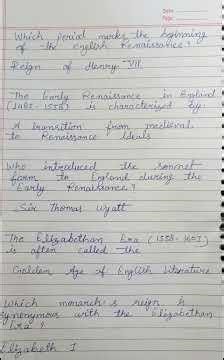 Date
Page
Which period marks the beginning
of the english Renaissance?
Reign of Henry VII.
The Early Renaissance in England
(1485-1558) is characterized by
A transition from medieval
to Renaissance Ideals
Who introduced the sonnet
form to England during the
Early Renaissance?
Sir Thomas Wyatt
The Elizabethan Era (1558-1603)
is often called the
Golden Age of English Literature
Which monarch's reign is
synonymous with the Elizabethan
Era?
Elizabeth I